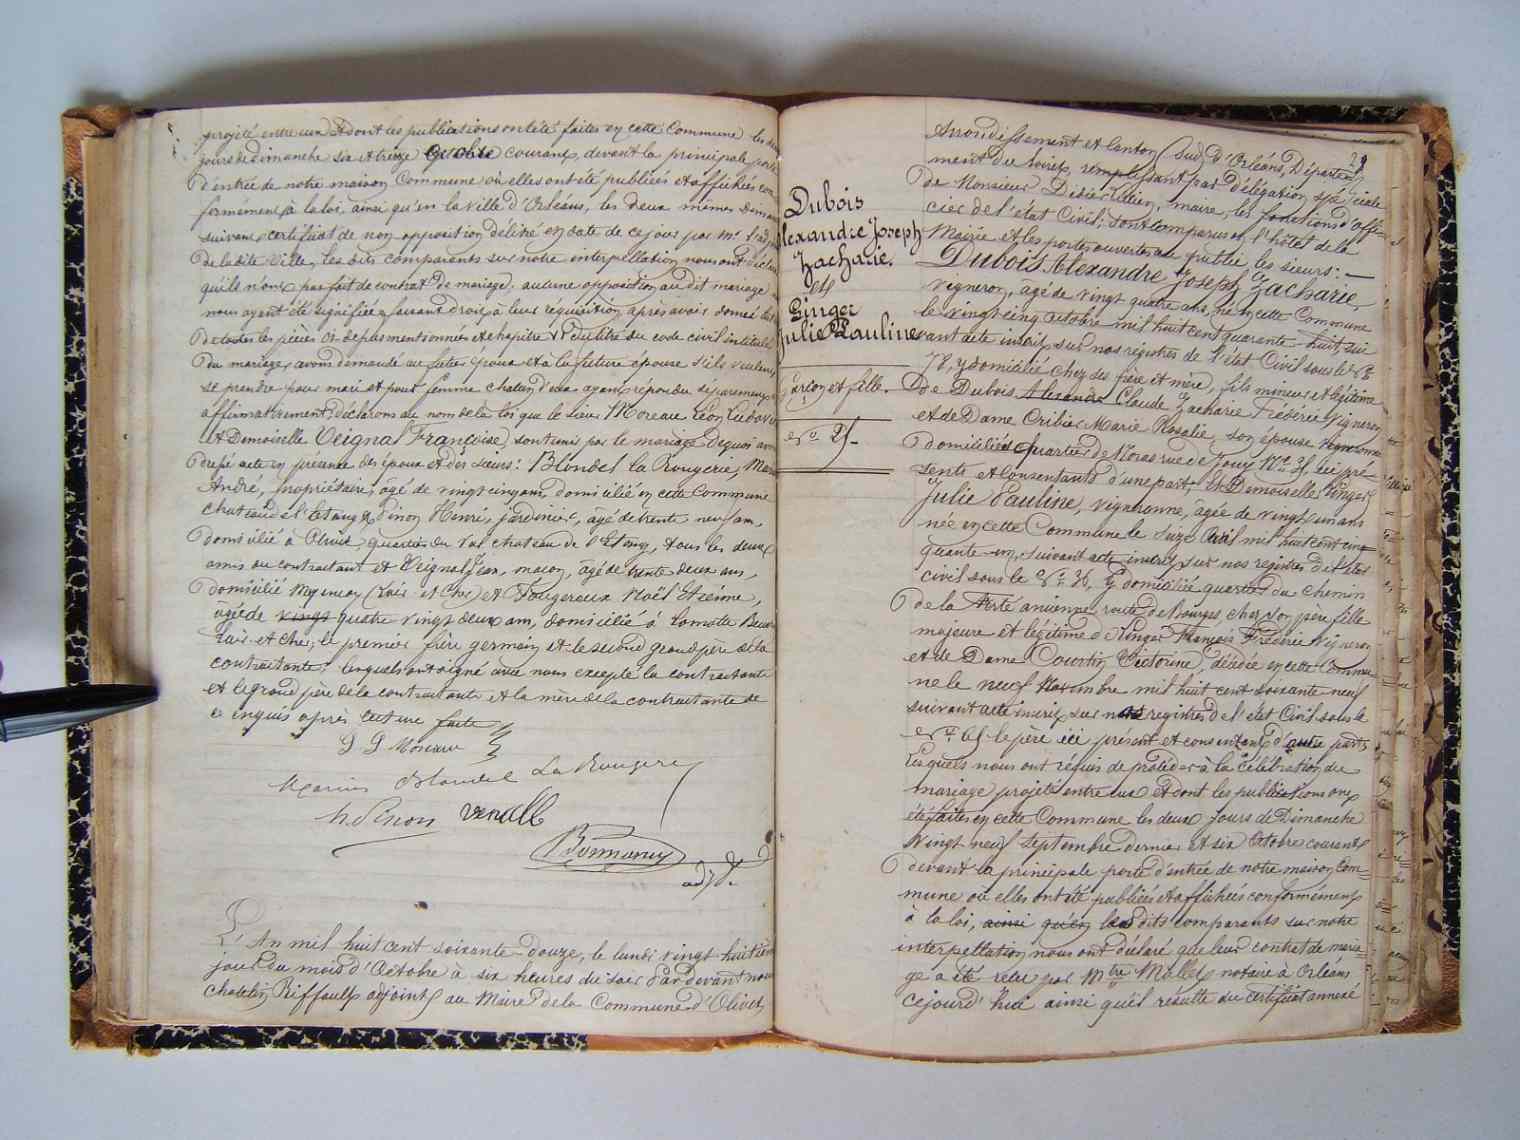 projeté entre eux et dont les publications ont été faites en cette Commune les deux
jours de Dimanche six et treize Octobre courant, devant la principale porte
d'entrée de notre maison Commune où elles ont été publiées et affichées con
formément à la loi, ainsi qu'en la ville d'Orléans, les deux mêmes Diman
suivant certificat de non opposition délivré en date de ce jour par Mr
de la dite ville, Les dits comparents sur notre interpellation nous ont déclaré
qu'ils n'ont pas fait de contrat de mariage, aucune opposition au dit mariage
nous ayant été signifiée, faisant droit à leur réquisition, après avoir donné lect
de toutes les pièces ci-dessus mentionnées et chapitre VI du titre du code civil intitulé
du mariage, avons demandé au futur époux et à la future épouse s'ils veulent
se prendre pour mari et pour femme chacun d'eux ayant répondu séparément
affirmativement, Déclarons au nom de la loi que le sieur Moreau Léon Ludovic
et Demoiselle Veignal Françoise, sont unis par le mariage de quoi avons
dressé acte en présence des époux et des sieurs : Blondel la Rougerie, Mari
André, propriétaire, âgé de vingt cinq ans, domicilié en cette Commune
château de l'Etang, Pinon Henri, jardinier, âgé de trente neuf ans,
domicilié à Olivet, quartier du Val château de l'Etang, tous les deux
amis du contractant et Veignal Jean, maçon, âgé de trente deux ans,
domicilié (Loir et Cher) et Fougereux Noël Etienne,
âgé de vingt quatre vingt deux ans, domicilié à Lamotte Beuv
Loir-et-Cher, le premier frère germain et le second grand père de la
contractante. Lesquels ont signé avec nous excepté la contractante
et le grand père de la contractante et la mère de la contractante de
ce enquis après lecture faite
L L Moreau
Marius Blondel La Rougerie
h. Pinon
adj.t
L'An mil huit cent soixante-douze, le lundi vingt huitième
jour du mois d'Octobre à six heures du soir Pardevant nous
Chatelin Riffault adjoint au Maire de la Commune d'Olivet,
29
Arrondissement et Canton (Sud) d'Orléans, Départe
ment du Loiret, remplissant par délégation spéciale
de Monsieur Didier Julien, maire, les fonctions d'offi=
cier de l'état Civil; sont comparus en l'hôtel de la
Mairie et les portes ouvertes au public, les sieurs : —
Dubois Alexandre, Joseph Zacharie,
vigneron, âgé de vingt quatre ans, né en cette Commune
le vingt cinq octobre mil huit cent quarante-huit, sui
vant acte inscrit sur nos registres de l'état Civil sous le No
78, y domicilié chez ses père et mère, fils mineur et légitime
de Dubois Alexandre Claude Zacharie Frédéric vigneron
et de Dame Cribier Marie Rosalie, son épouse vigneronne
domiciliés quartier de Noras rue de Jouy No 35 ici pré=
sents et consentants d'une part; Et Demoiselle Singer
Julie Pauline, vigneronne, âgée de vingt un ans
née en cette Commune le seize Avril mil huit cent cin=
quante-un, suivant acte inscrit sur nos registres de l'état
civil sous le No 36, y domiciliée quartier du chemin
de la Ferté ancienne route de Bourges chez son père fille
majeure et légitime de Singer François Frédéric Vigneron
et de Dame Courtin Victorine, décédée en cette Commu=
ne le neuf Novembre mil huit cent soixante neuf
suivant acte inscrit sur nos registres de l'état Civil sous le
No 65 le père ici présent et consentant d'autre part;
Lesquels nous ont requis de procéder à la Célébration du
mariage projeté entre eux et dont les publications ont
été faites en cette Commune les deux jours de Dimanche
vingt neuf Septembre dernier et six Octobre courant
devant la principale porte d'entrée de notre maison Com=
mune où elles ont été publiées et affichées conformément
à la loi, ainsi qu'en les dits comparants sur notre
interpellation nous ont déclaré que leur contrat de maria=
ge a été reçu par Mtre Mallet notaire à Orléans
cejourd'hui ainsi qu'il résulte du certificat annexé
Dubois
lexandre Joseph
Zacharie.
et
Singer
Julie Pauline
Garçon et fille.
No 25